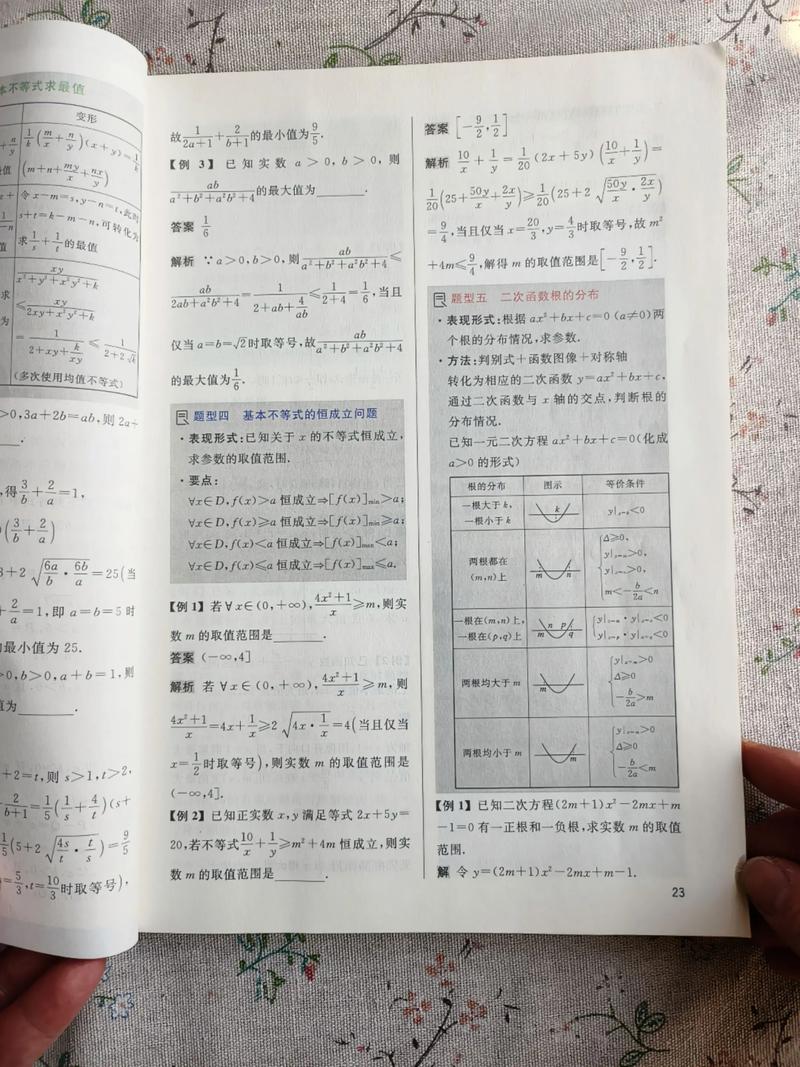 本不等式求最值
变形
1/k(m/x+n/y)(x+y)=1/k
(m+n+my/x+nx/y)
令x-m=s,y-n=t,此时
s+t=k-m-n,可转化为
求1/s+1/t的最值
xy/(x²+y²+x²y²+k)
≤xy/(2xy+x²y²+k)
=1/(2+xy+k/xy)≤1/(2+2√k)
(多次使用均值不等式)
>0,3a+2b=ab,则2a+
得3/b+2/a=1,
(3/b+2/a)
3+2√(6a/b·6b/a)=25(当
2/a=1,即a=b=5时
最小值为25.
>0,b>0,a+b=1,则
值为________.
+2=t,则s>1,t>2,
2/(b+1)=1/5(1/s+4/t)(s+
1/5(5+2√(4s/t·t/s))=9/5
=5/3,t=10/3时取等号),
故1/(2a+1)+2/(b+1)的最小值为9/5.
【例3】已知实数a>0,b>0,则
ab/(a²+b²+a²b²+4)的最大值为________.
答案 1/6
解析 ∵a>0,b>0,则ab/(a²+b²+a²b²+4)≤
ab/(2ab+a²b²+4)=1/(2+ab+4/ab)≤1/(2+4)=1/6,当且
仅当a=b=√2时取等号,故ab/(a²+b²+a²b²+4)
的最大值为1/6.
题型四 基本不等式的恒成立问题
·表现形式:已知关于x的不等式恒成立,
求参数的取值范围.
·要点:
∀x∈D,f(x)>a恒成立⇒[f(x)]min>a;
∀x∈D,f(x)≥a恒成立⇒[f(x)]min≥a;
∀x∈D,f(x)<a恒成立⇒[f(x)]max<a;
∀x∈D,f(x)≤a恒成立⇒[f(x)]max≤a.
【例1】若∀x∈(0,+∞),(4x²+1)/x≥m,则实
数m的取值范围是________.
答案 (-∞,4]
解析 若∀x∈(0,+∞),(4x²+1)/x≥m,则
(4x²+1)/x=4x+1/x≥2√(4x·1/x)=4(当且仅当
x=1/2时取等号),则实数m的取值范围是
(-∞,4].
【例2】已知正实数x,y满足等式2x+5y=
20,若不等式10/x+1/y≥m²+4m恒成立,则实
数m的取值范围是________.
答案 [-9/2,1/2]
解析 10/x+1/y=1/20(2x+5y)(10/x+1/y)=
1/20(25+50y/x+2x/y)≥1/20(25+2√(50y/x·2x/y))
=9/4,当且仅当x=20/3,y=4/3时取等号,故m²
+4m≤9/4,解得m的取值范围是[-9/2,1/2].
题型五 二次函数根的分布
·表现形式:根据ax²+bx+c=0(a≠0)两
个根的分布情况,求参数.
·方法:判别式+函数图像+对称轴
转化为相应的二次函数y=ax²+bx+c,
通过二次函数与x轴的交点,判断根的
分布情况.
已知一元二次方程ax²+bx+c=0(化成
a>0的形式)
根的分布 图示 等价条件
一根大于k,
一根小于k
k
y|x=k<0
两根都在
(m,n)上
m n
Δ≥0,
y|x=m>0,
y|x=n>0,
m<-b/2a<n
一根在(m,n)上,
一根在(p,q)上
m n p q
y|x=m·y|x=n<0
y|x=p·y|x=q<0
两根均大于m
m
y|x=m>0
Δ≥0
-b/2a>m
两根均小于m
m
y|x=m>0
Δ≥0
-b/2a<m
【例1】已知二次方程(2m+1)x²-2mx+m
-1=0有一正根和一负根,求实数m的取值
范围.
解 令y=(2m+1)x²-2mx+m-1.
23